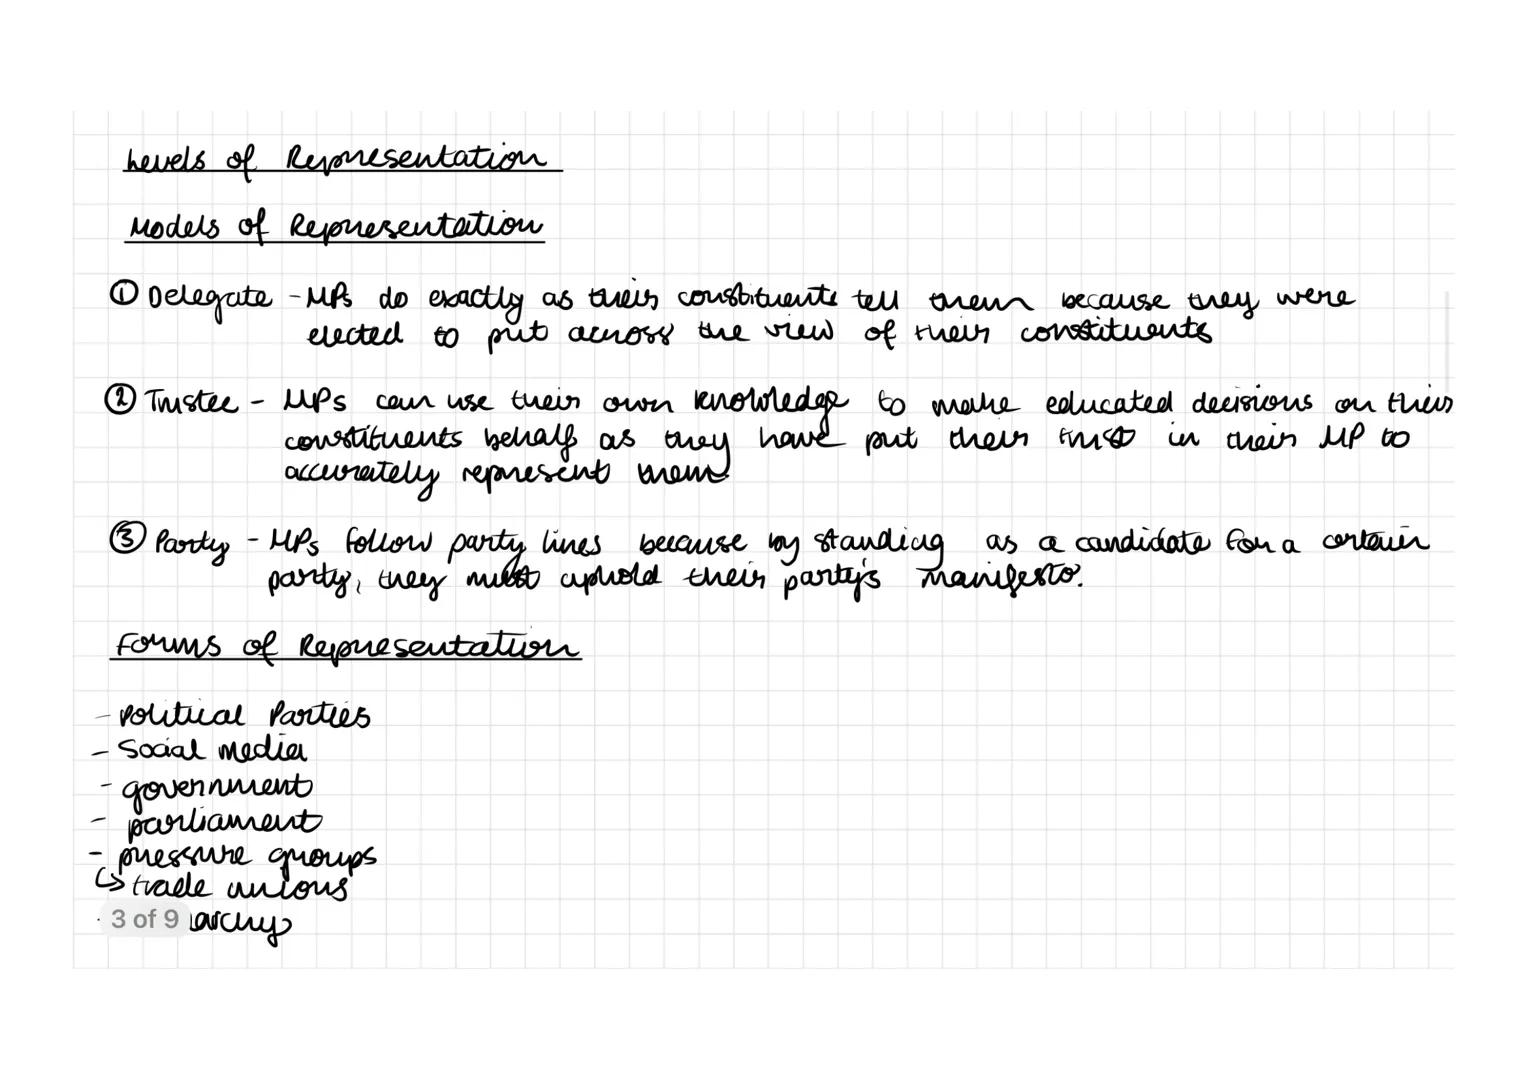 Levels of Representation
Models of Representation
① Delegate - MPs do exactly as their constituents tell them because they were
elected to put across the view of their constituents
② Trustee - MPs can use their own knowledge to make educated decisions on their
constituents behalf as they have put their trust in their MP to
accurately represent them.
③ Party - MPs follow party lines because by standing as a candidate for a certain
party, they must uphold their party's manifesto.
Forms of Representation
- Political Parties
- Social media
- government
- parliament
- pressure groups
↳ trade unions
3 of 9 archy